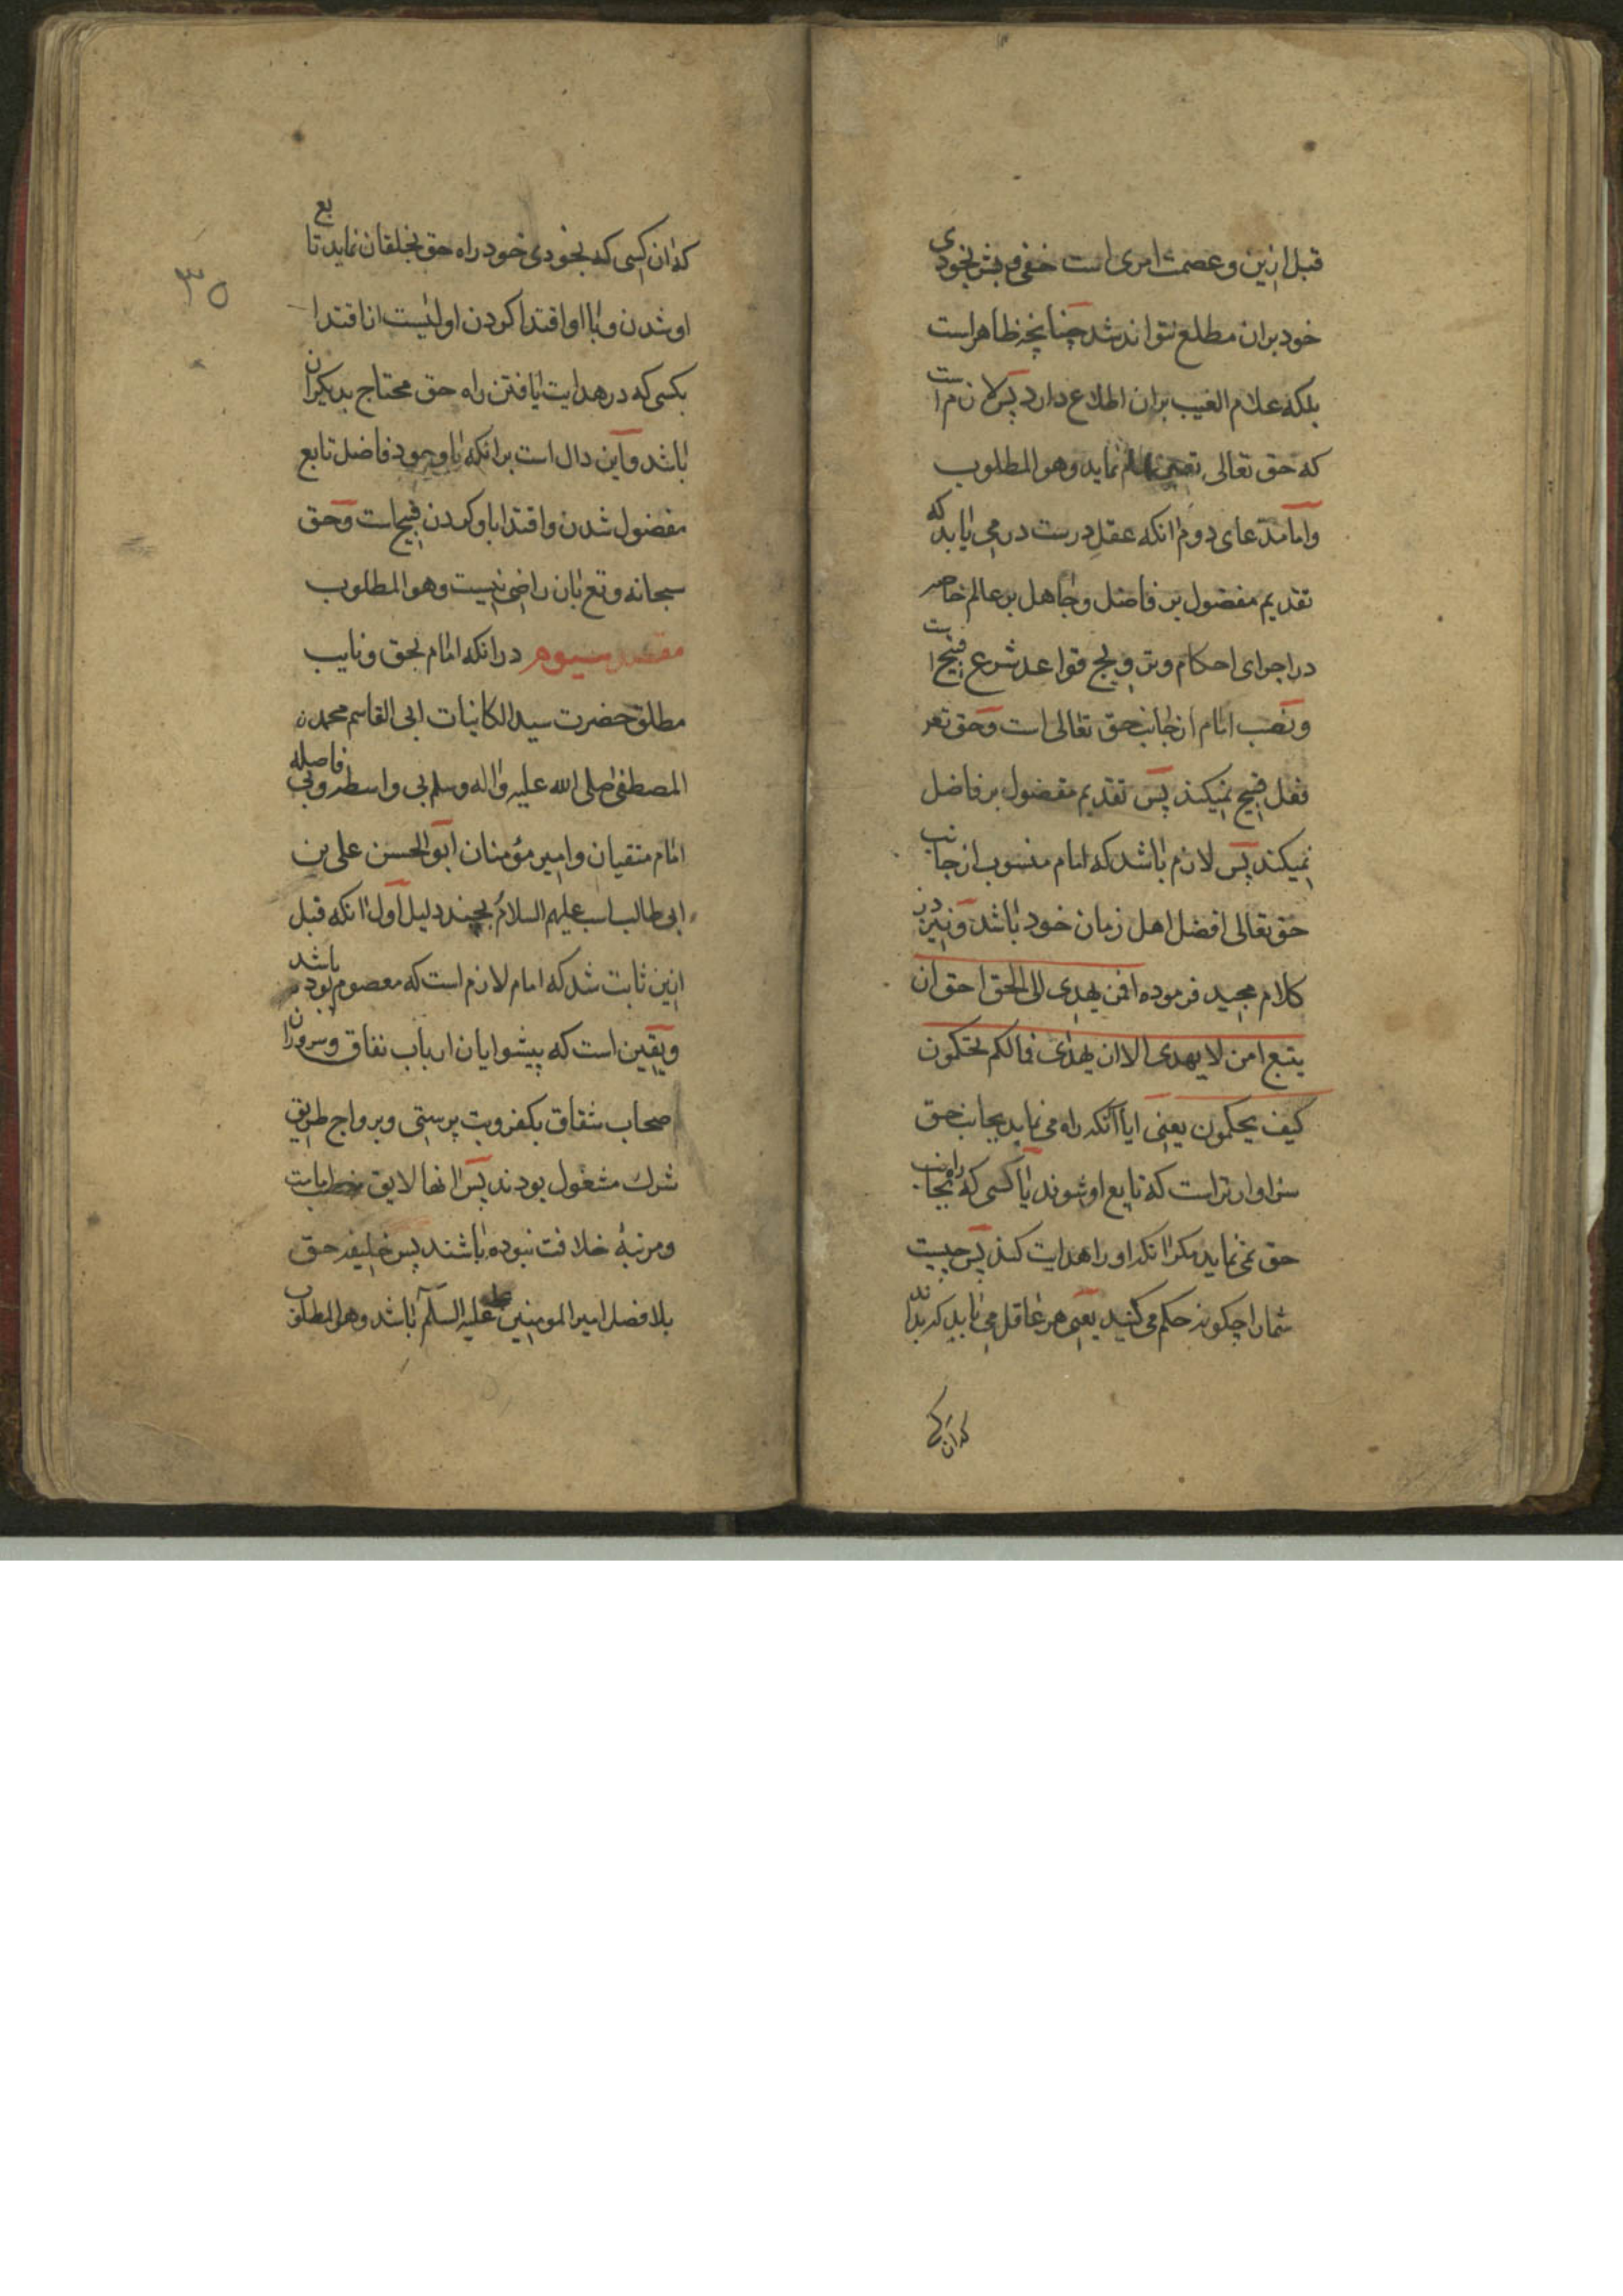 قبل ازین و عصمت امریست خفی و بشر بخودی
خود بران مطلع نتواند شد چنانچه ظاهر است
بلکه علام الغیب بران اطلاع دارد پس لازم است
که حق تعالی تعیین امام نماید وهو المطلوب
واما مدعای دوم انکه عقل درست در می یابد که
تقدیم مفضول بر فاضل و جاهل بر عالم خاصه
در اجرای احکام و ترویج قواعد شرع قبیح است
و نصب امام از جانب حق تعالی است و حق تعر
فعل قبیح نمیکند پس تقدیم مفضول بر فاضل
نمیکند پس لازم باشد که امام منسوب از جانب
حق تعالی افضل اهل زمان خود باشد و نیز در
کلام مجید فرموده افمن یهدی الی الحق احق ان
یتبع امن لا یهدی الا ان یهدی فما لکم تحکمون
کیف یحکمون یعنی ایا انکه راه می نماید بجانب حق
سزاوارتر است که تابع او شوند یا کسی که بجانب راه
حق نمی نماید مکر انکه او را هدایت کنند پس چیست
شما را چکونه حکم می کنید یعنی هر عاقل می یابد که بداند
که ان کسی
که ان کسی که بخودی خود راه حق بخلقان نماید تابع
او شدن و باو اقتدا کردن اولیست از اقتدا
بکسی که در هدایت یافتن راه حق محتاج بدیکران
باشد و این دال است بر انکه با وجود فاضل تابع
مفضول شدن و اقتدا باو کردن قبیح است و حق
سبحانه و تع بان راضی نیست وهو المطلوب
مقصد سیوم در انکه امام بحق و نایب
مطلق حضرت سید الکاینات ابی القاسم محمد
المصطفی صلی الله علیه واله وسلم بی واسطه و بی فاصله
امام متقیان و امیر مؤمنان ابو الحسن علی بن
ابی طالب است علیهم السلام بچند دلیل اول انکه قبل
ازین ثابت شد که امام لازم است که معصوم بود باشد
و یقین است که پیشوایان ارباب نفاق و سروران
اصحاب شقاق بکفر و بت پرستی و برواج طریق
شرک مشغول بودند پس انها لایق امامت
و مرتبهٔ خلافت نبوده باشند پس خلیفه حق
بلا فصل امیر المومنین علیه السلم باشد وهو المطلوب
۳۵